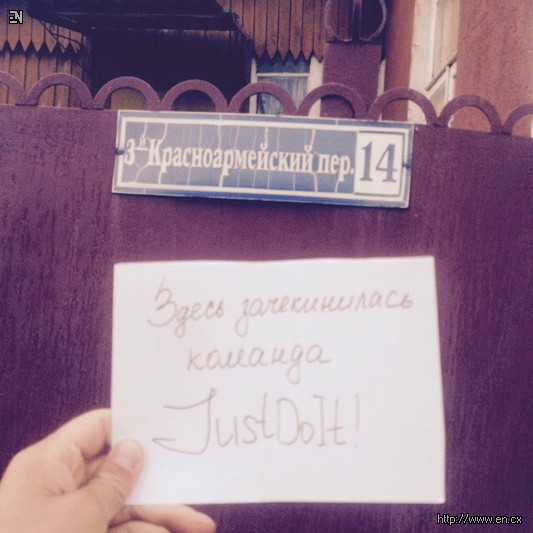 EN
3й Красноармейский пер. 14
Здесь зачекинилась
команда
JustDoIt!
http://www.en.cx